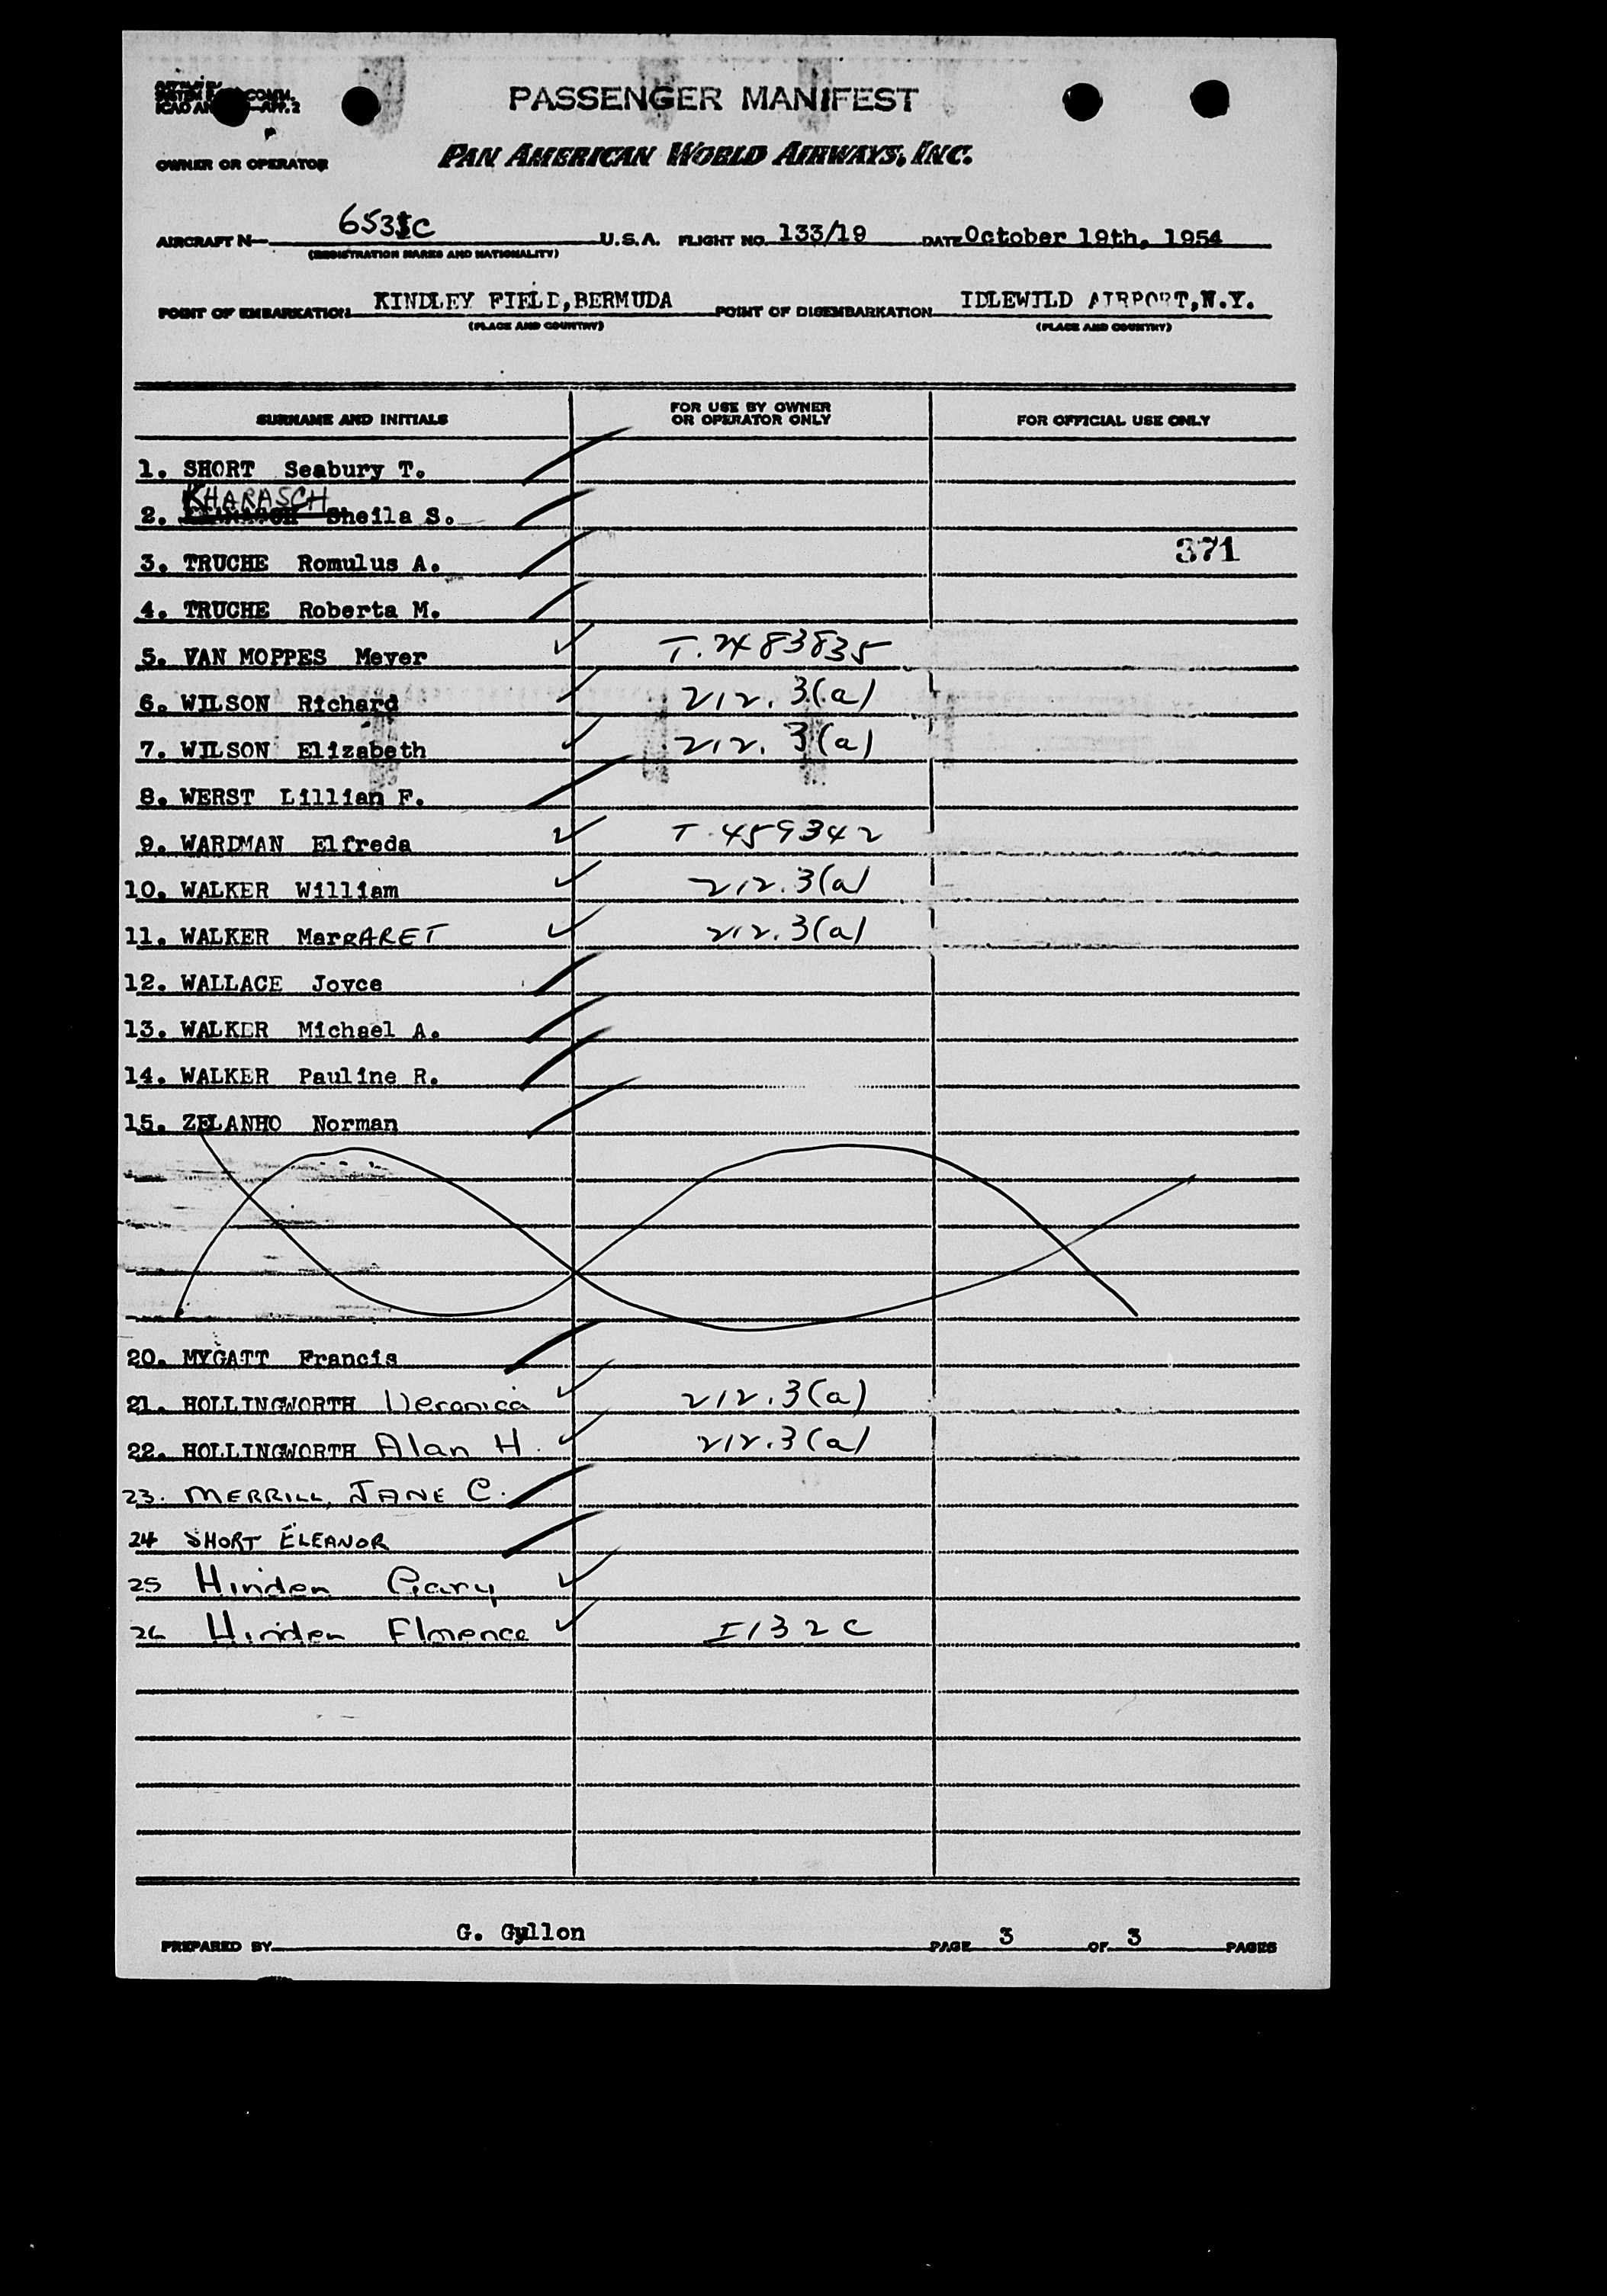 PASSENGER MANIFEST
OWNER OR OPERATOR PAN AMERICAN WORLD AIRWAYS, INC.
AIRCRAFT N— U.S.A. FLIGHT NO. 133/19 DATE October 19th, 1954
(REGISTRATION MARKS AND NATIONALITY)
POINT OF EMBARKATION KINDLEY FIELD, BERMUDA POINT OF DISEMBARKATION IDLEWILD AIRPORT, N.Y.
(PLACE AND COUNTRY) (PLACE AND COUNTRY)
SURNAME AND INITIALS FOR USE BY OWNER OR OPERATOR ONLY FOR OFFICIAL USE ONLY
1. SHORT Seabury T.
2. KHARASCH Sheila S.
371
3. TRUCHE Romulus A.
4. TRUCHE Roberta M.
5. VAN MOPPES Meyer T. 2483835
6. WILSON Richard 212.3(a)
7. WILSON Elizabeth 212.3(a)
8. WERST Lillian F.
9. WARDMAN Elfreda T.459342
10. WALKER William 212.3(a)
11. WALKER MargARET 212.3(a)
12. WALLACE Joyce
13. WALKER Michael A.
14. WALKER Pauline R.
15. ZELANHO Norman
20. MYGATT Francis
21. HOLLINGWORTH Veronica 212.3(a)
22. HOLLINGWORTH Alan H. 212.3(a)
23. MERRILL, JANE C.
24 SHORT ELEANOR
25 Hinden Gary
26 Hinden Florence I132C
PREPARED BY G. Gyllon PAGE 3 OF 3 PAGES